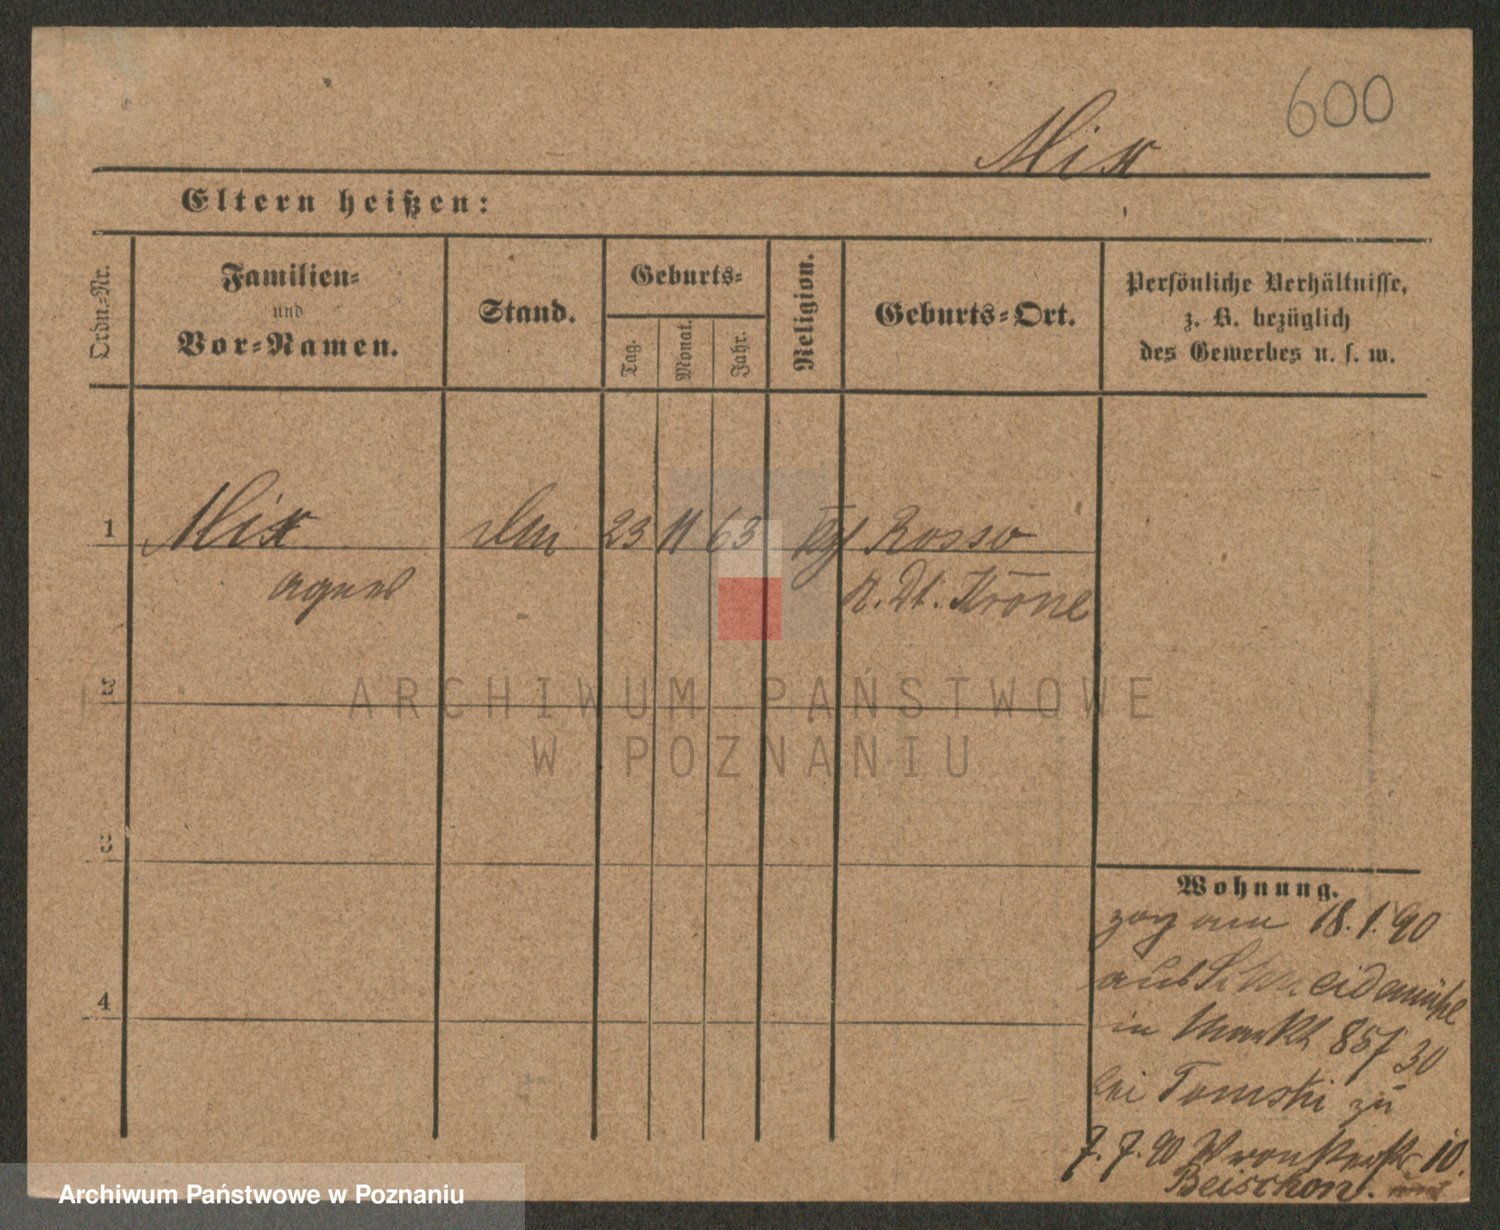 600
Mix
Eltern heißen:
Ordn.-Nr.
Familien-
und
Vor-Namen.
Stand.
Geburts-
Tag.
Monat.
Jahr.
Religion.
Geburts-Ort.
Persönliche Verhältnisse,
z. B. bezüglich
des Gewerbes u. s. w.
1 Mix 23 11 63 Rosso
Agnes K. Dt. Krone
2
3
4
Wohnung.
zog am 18.1.90
aus Schneidemühl
in Markt 85/30
bei Tomski zu
7.7.90 Wronkerstr 10.
Beischkon.
ARCHIWUM PAŃSTWOWE
W POZNANIU
Archiwum Państwowe w Poznaniu